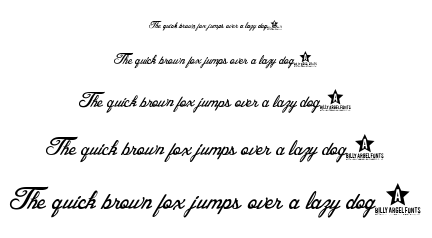 The quick brown fox jumps over a lazy dog
The quick brown fox jumps over a lazy dog
The quick brown fox jumps over a lazy dog A BILLY ARGEL FONTS
The quick brown fox jumps over a lazy dog A BILLY ARGEL FONTS
The quick brown fox jumps over a lazy dog A BILLY ARGEL FONTS